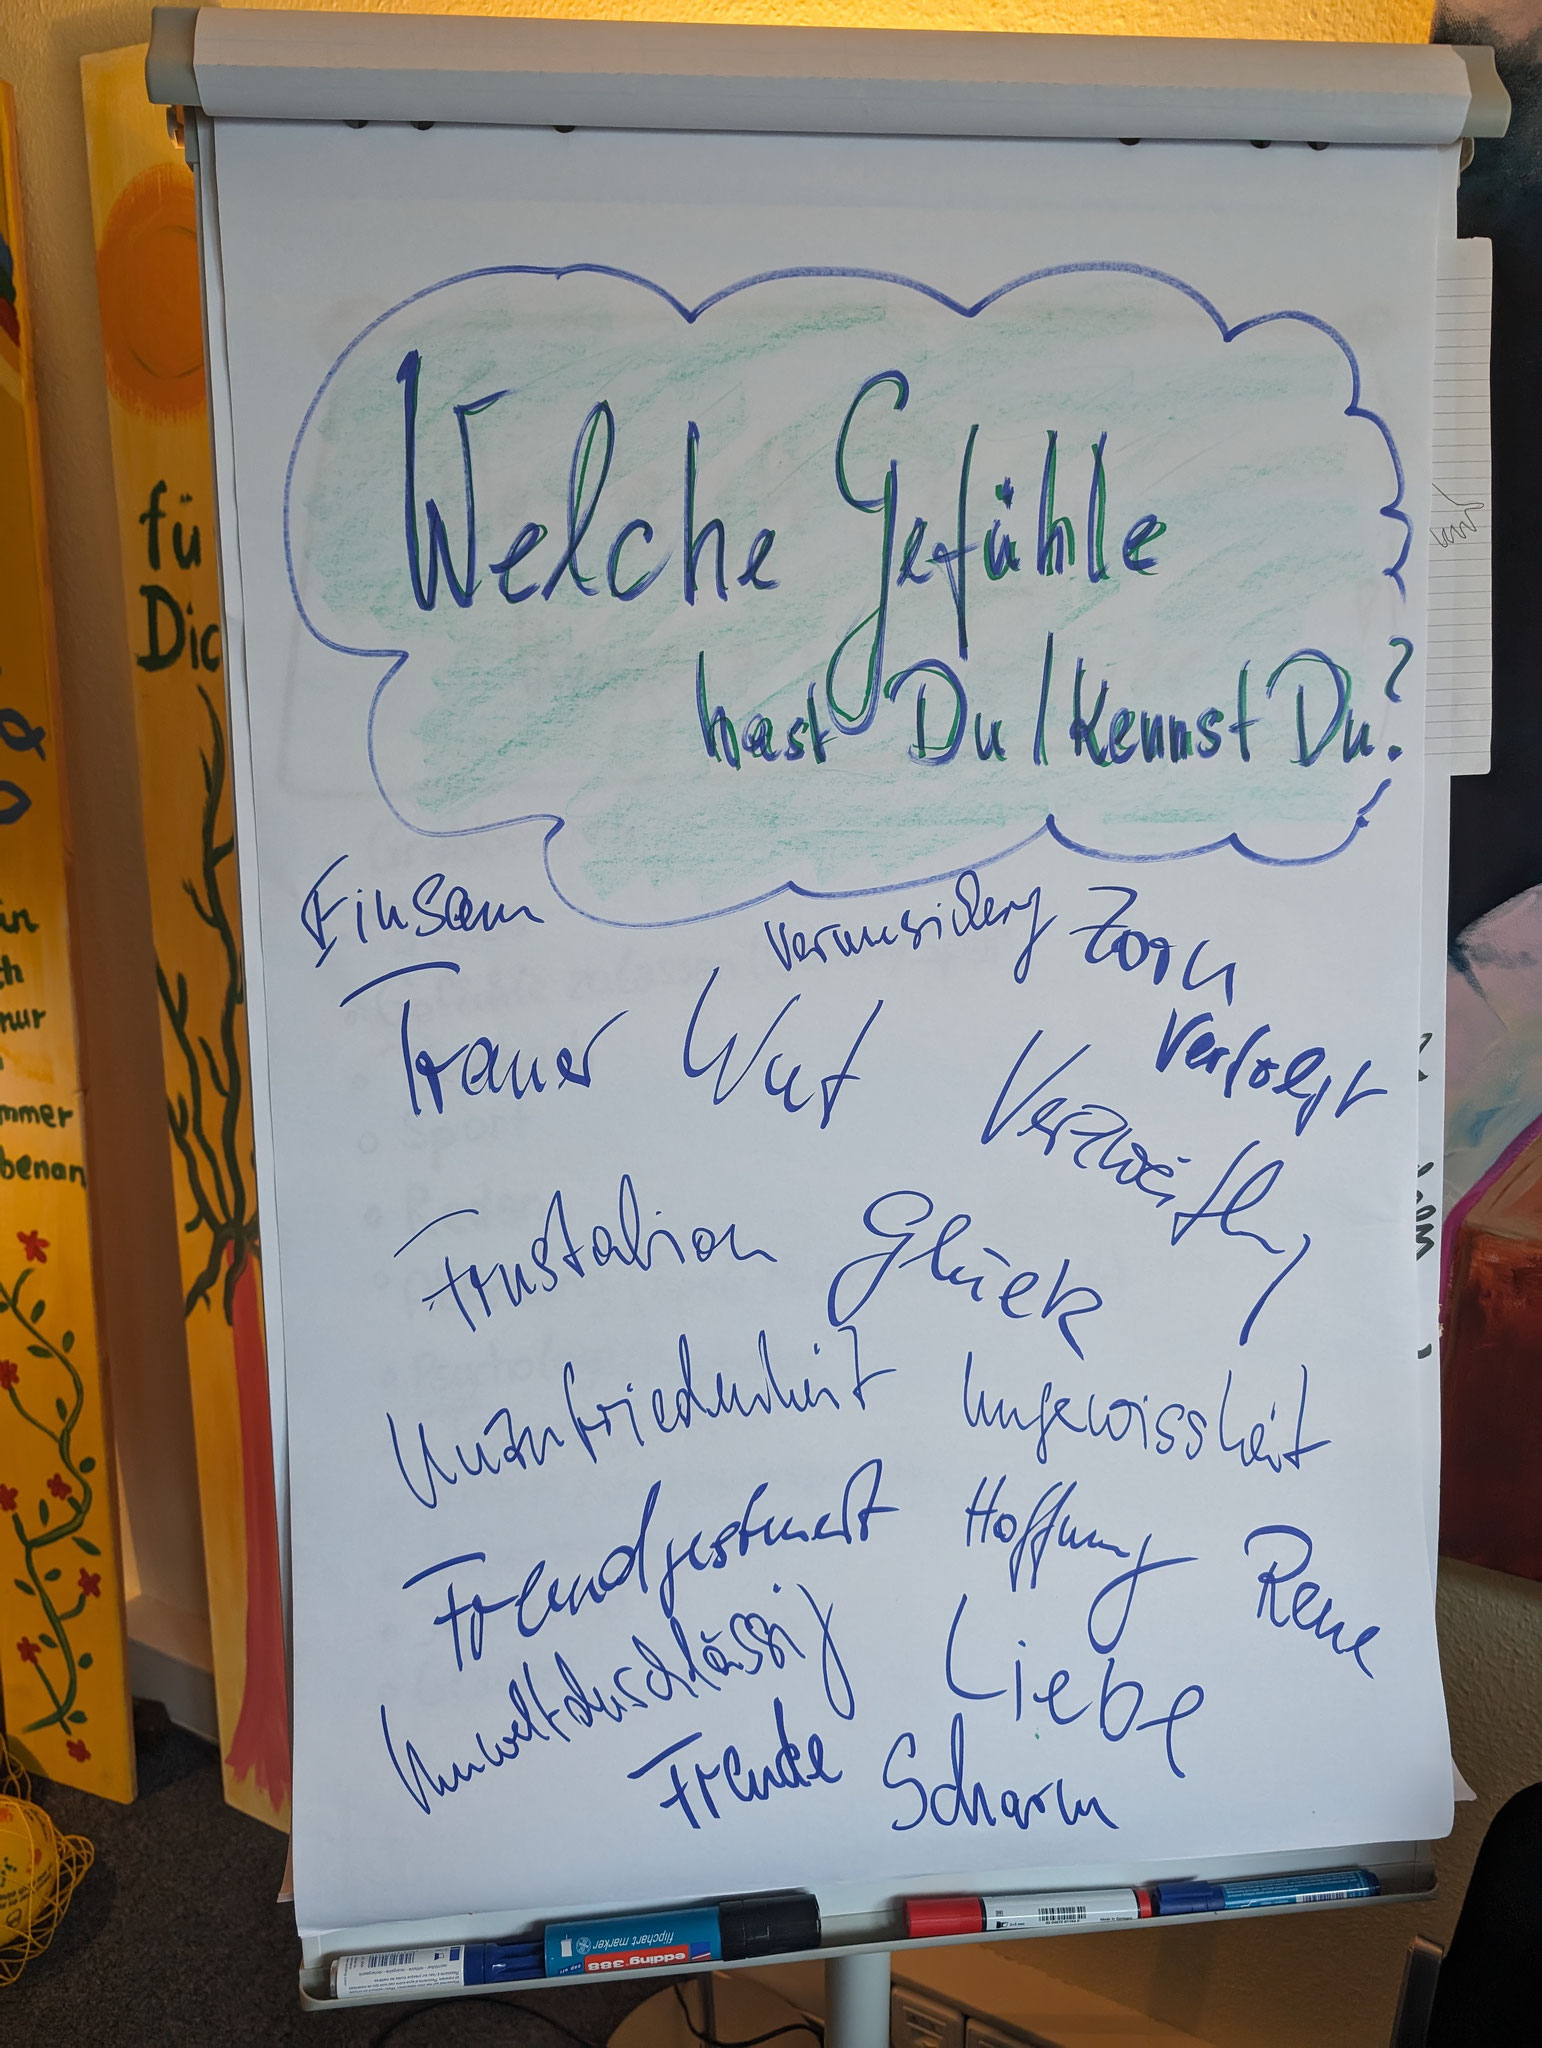 Welche Gefühle
hast Du / kennst Du?
Einsam
Verunsicherg
Zorn
Trauer
Wut
Verfolgt
Verzweiflg
Frustation
Glück
Unzufriedenheit
Ungewissheit
Fremdgesteuert
Hoffnung
Reue
Umweltduschlässig
Liebe
Freude
Scharm
fü
Dic
in
ch
nur
mmer
benan
flipchart marker
edding 388